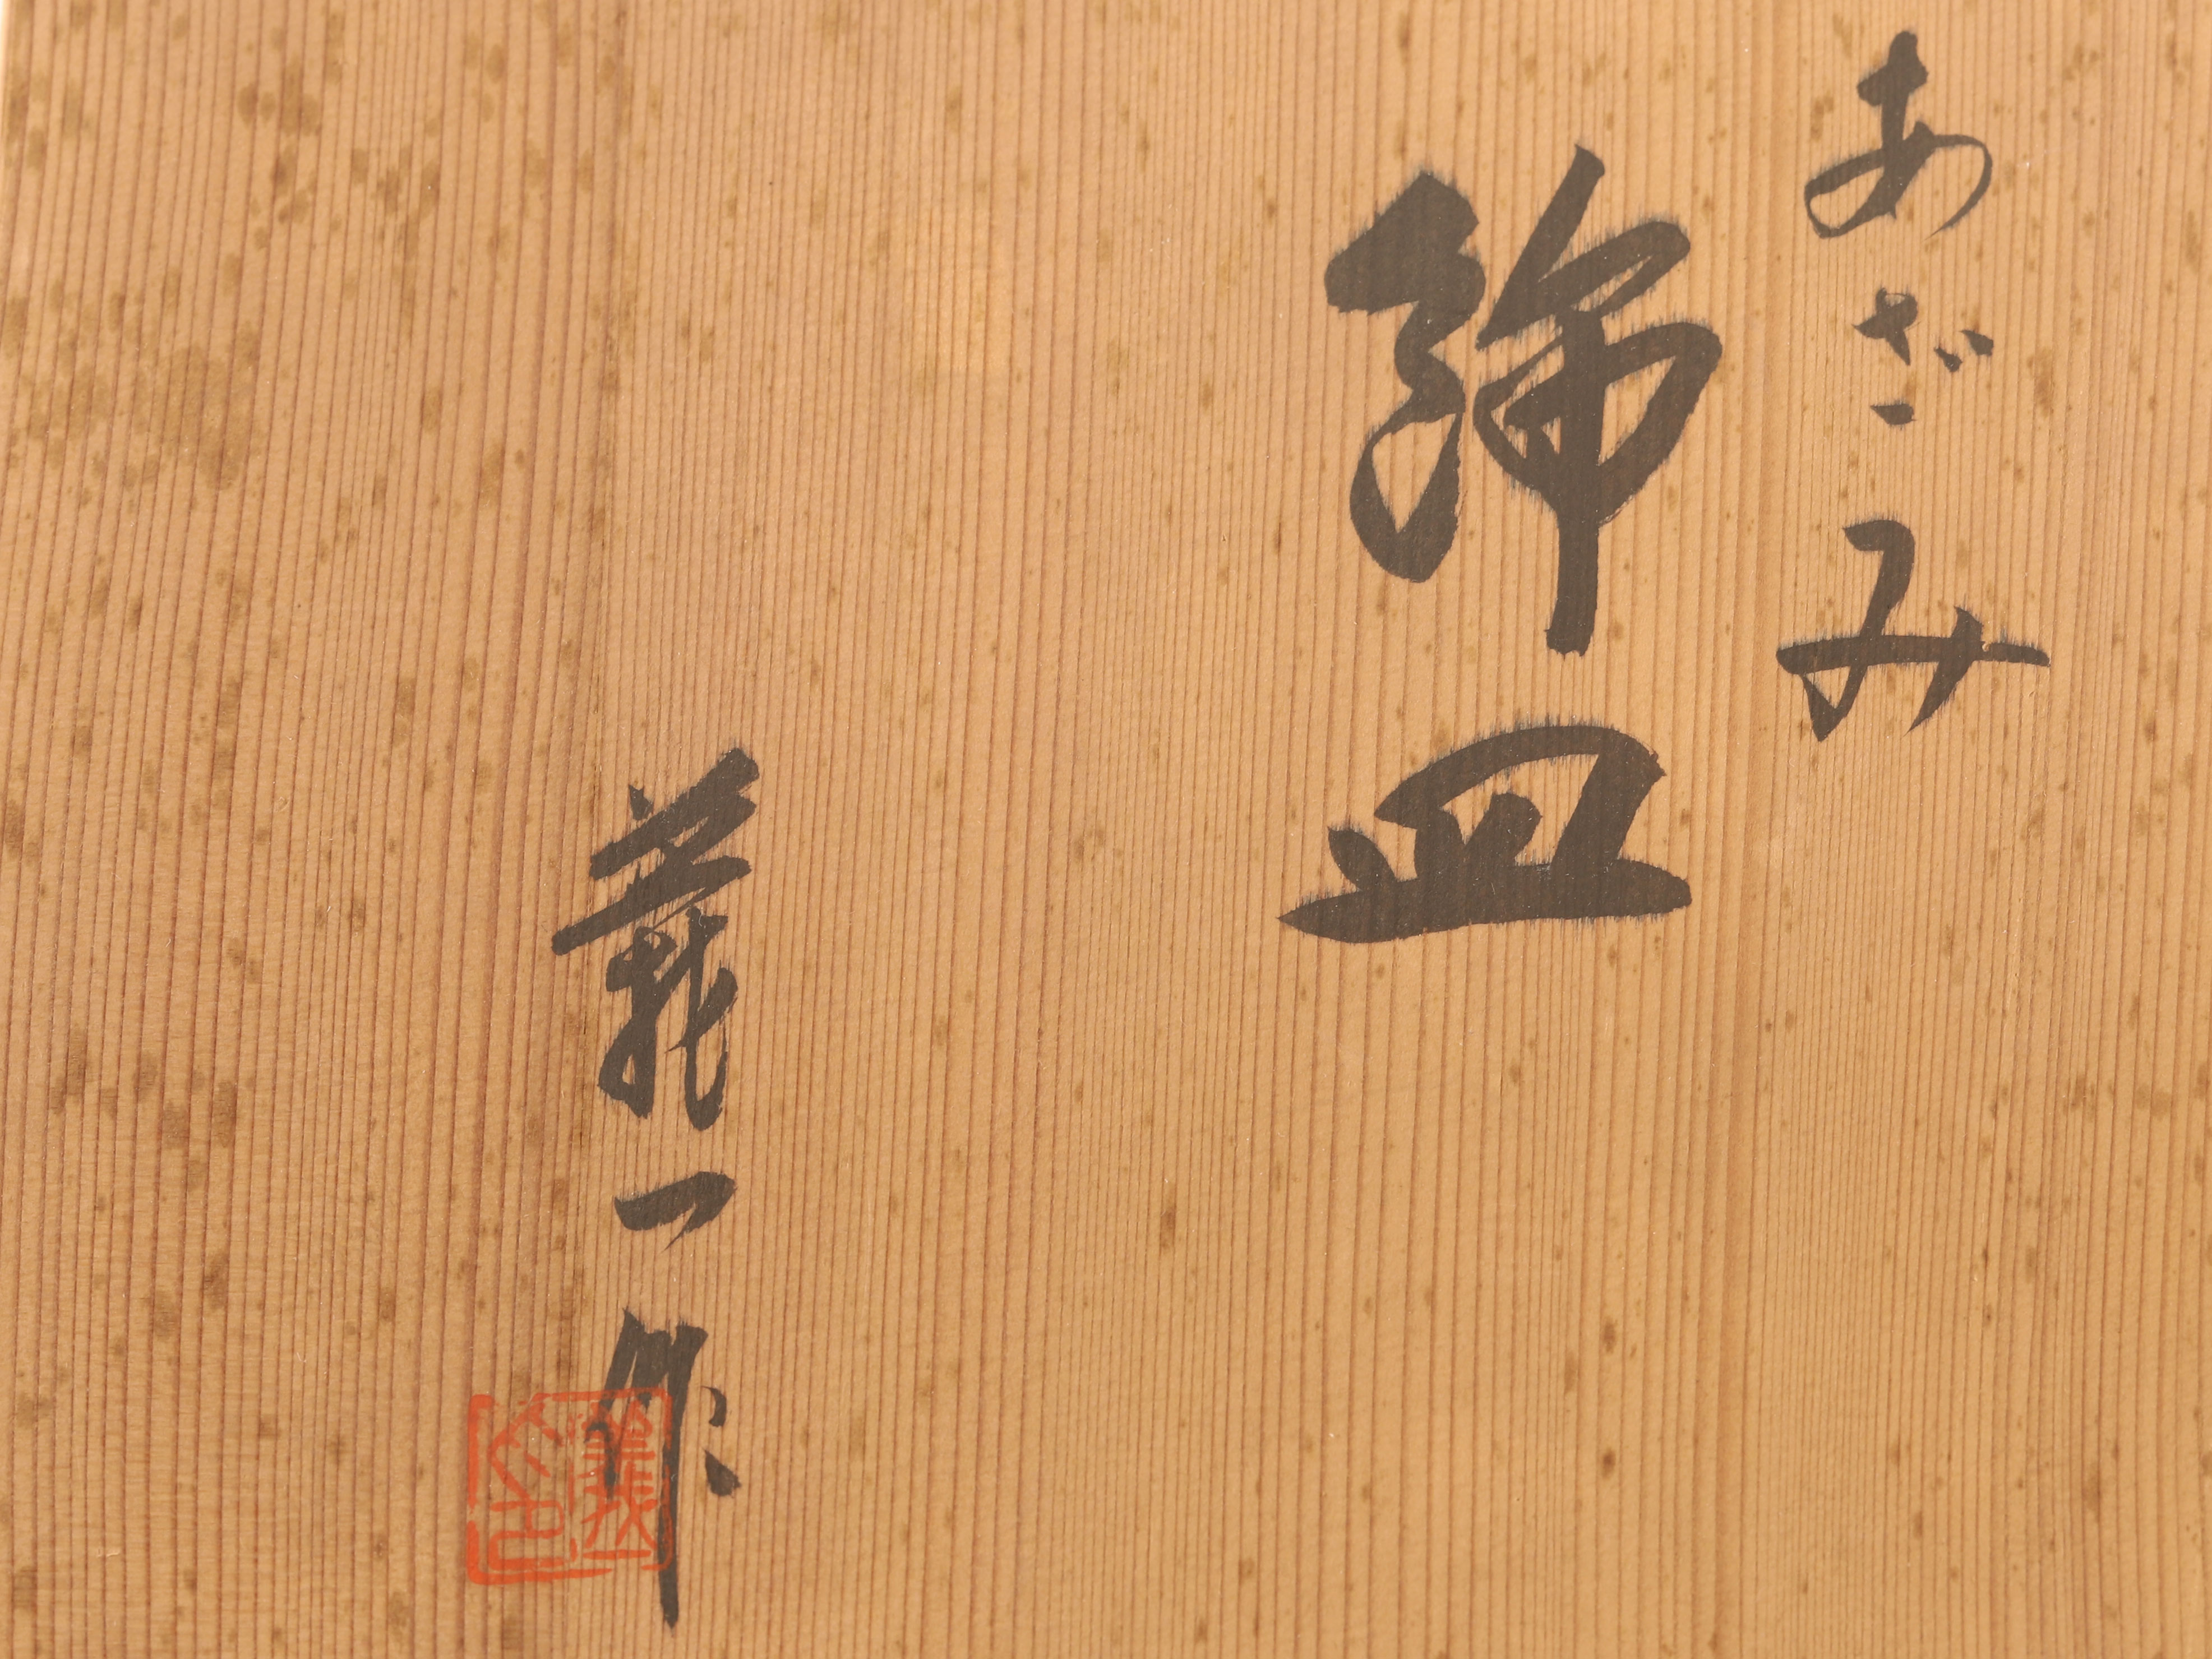 あざみ
絵皿
義一作